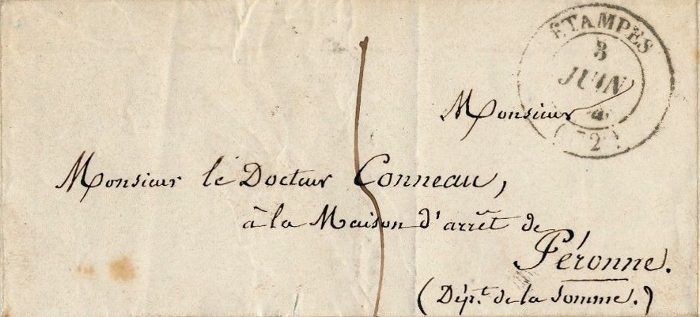 ÉTAMPES
3
JUIN
(72)
Monsieur
Monsieur le Docteur Conneau,
à la Maison d'arrêt de
Péronne.
(Dép.t de la Somme.)